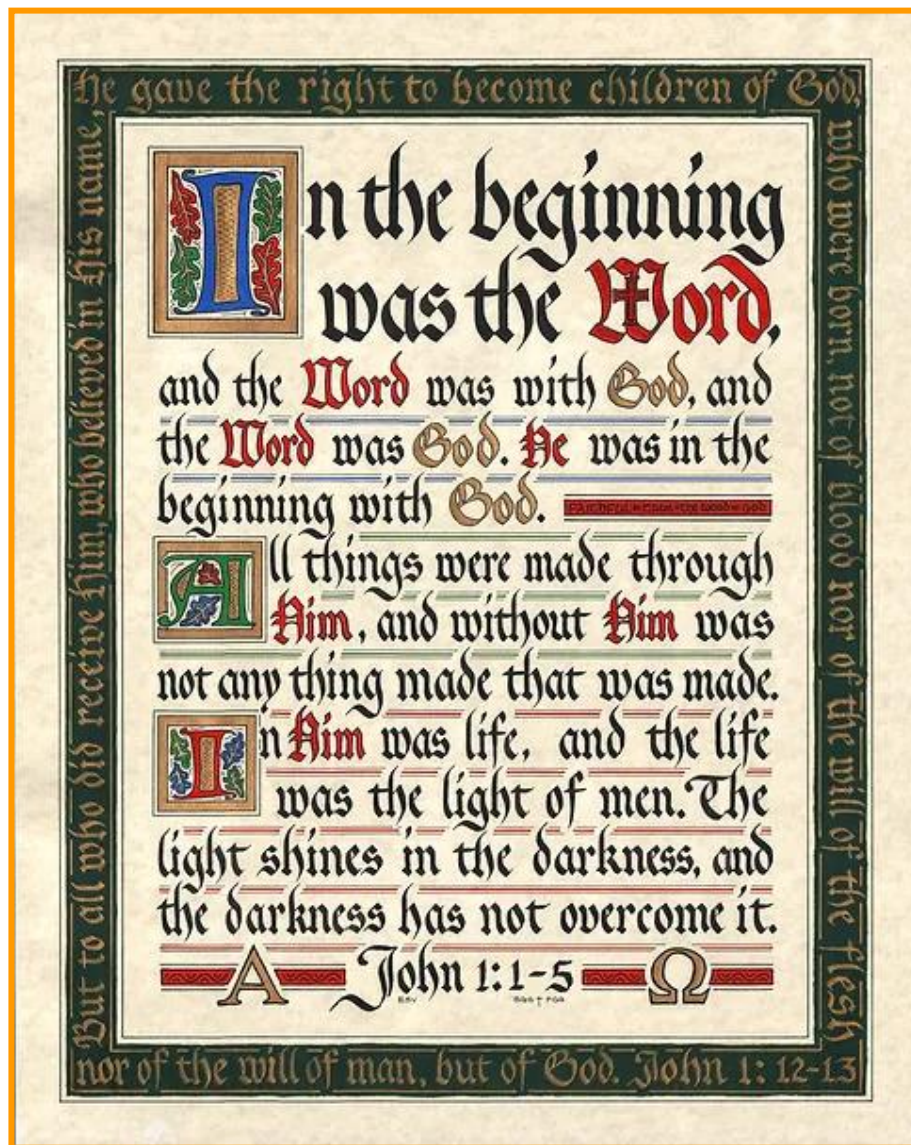 But to all who did receive him, who believed in His name,
He gave the right to become children of God,
who were born, not of blood nor of the will of the flesh
nor of the will of man, but of God. John 1: 12-13
In the beginning
was the Word,
and the Word was with God, and
the Word was God. He was in the
beginning with God.
All things were made through
Him, and without Him was
not any thing made that was made.
In Him was life, and the life
was the light of men. The
light shines in the darkness, and
the darkness has not overcome it.
Α John 1: 1-5 Ω
ESV